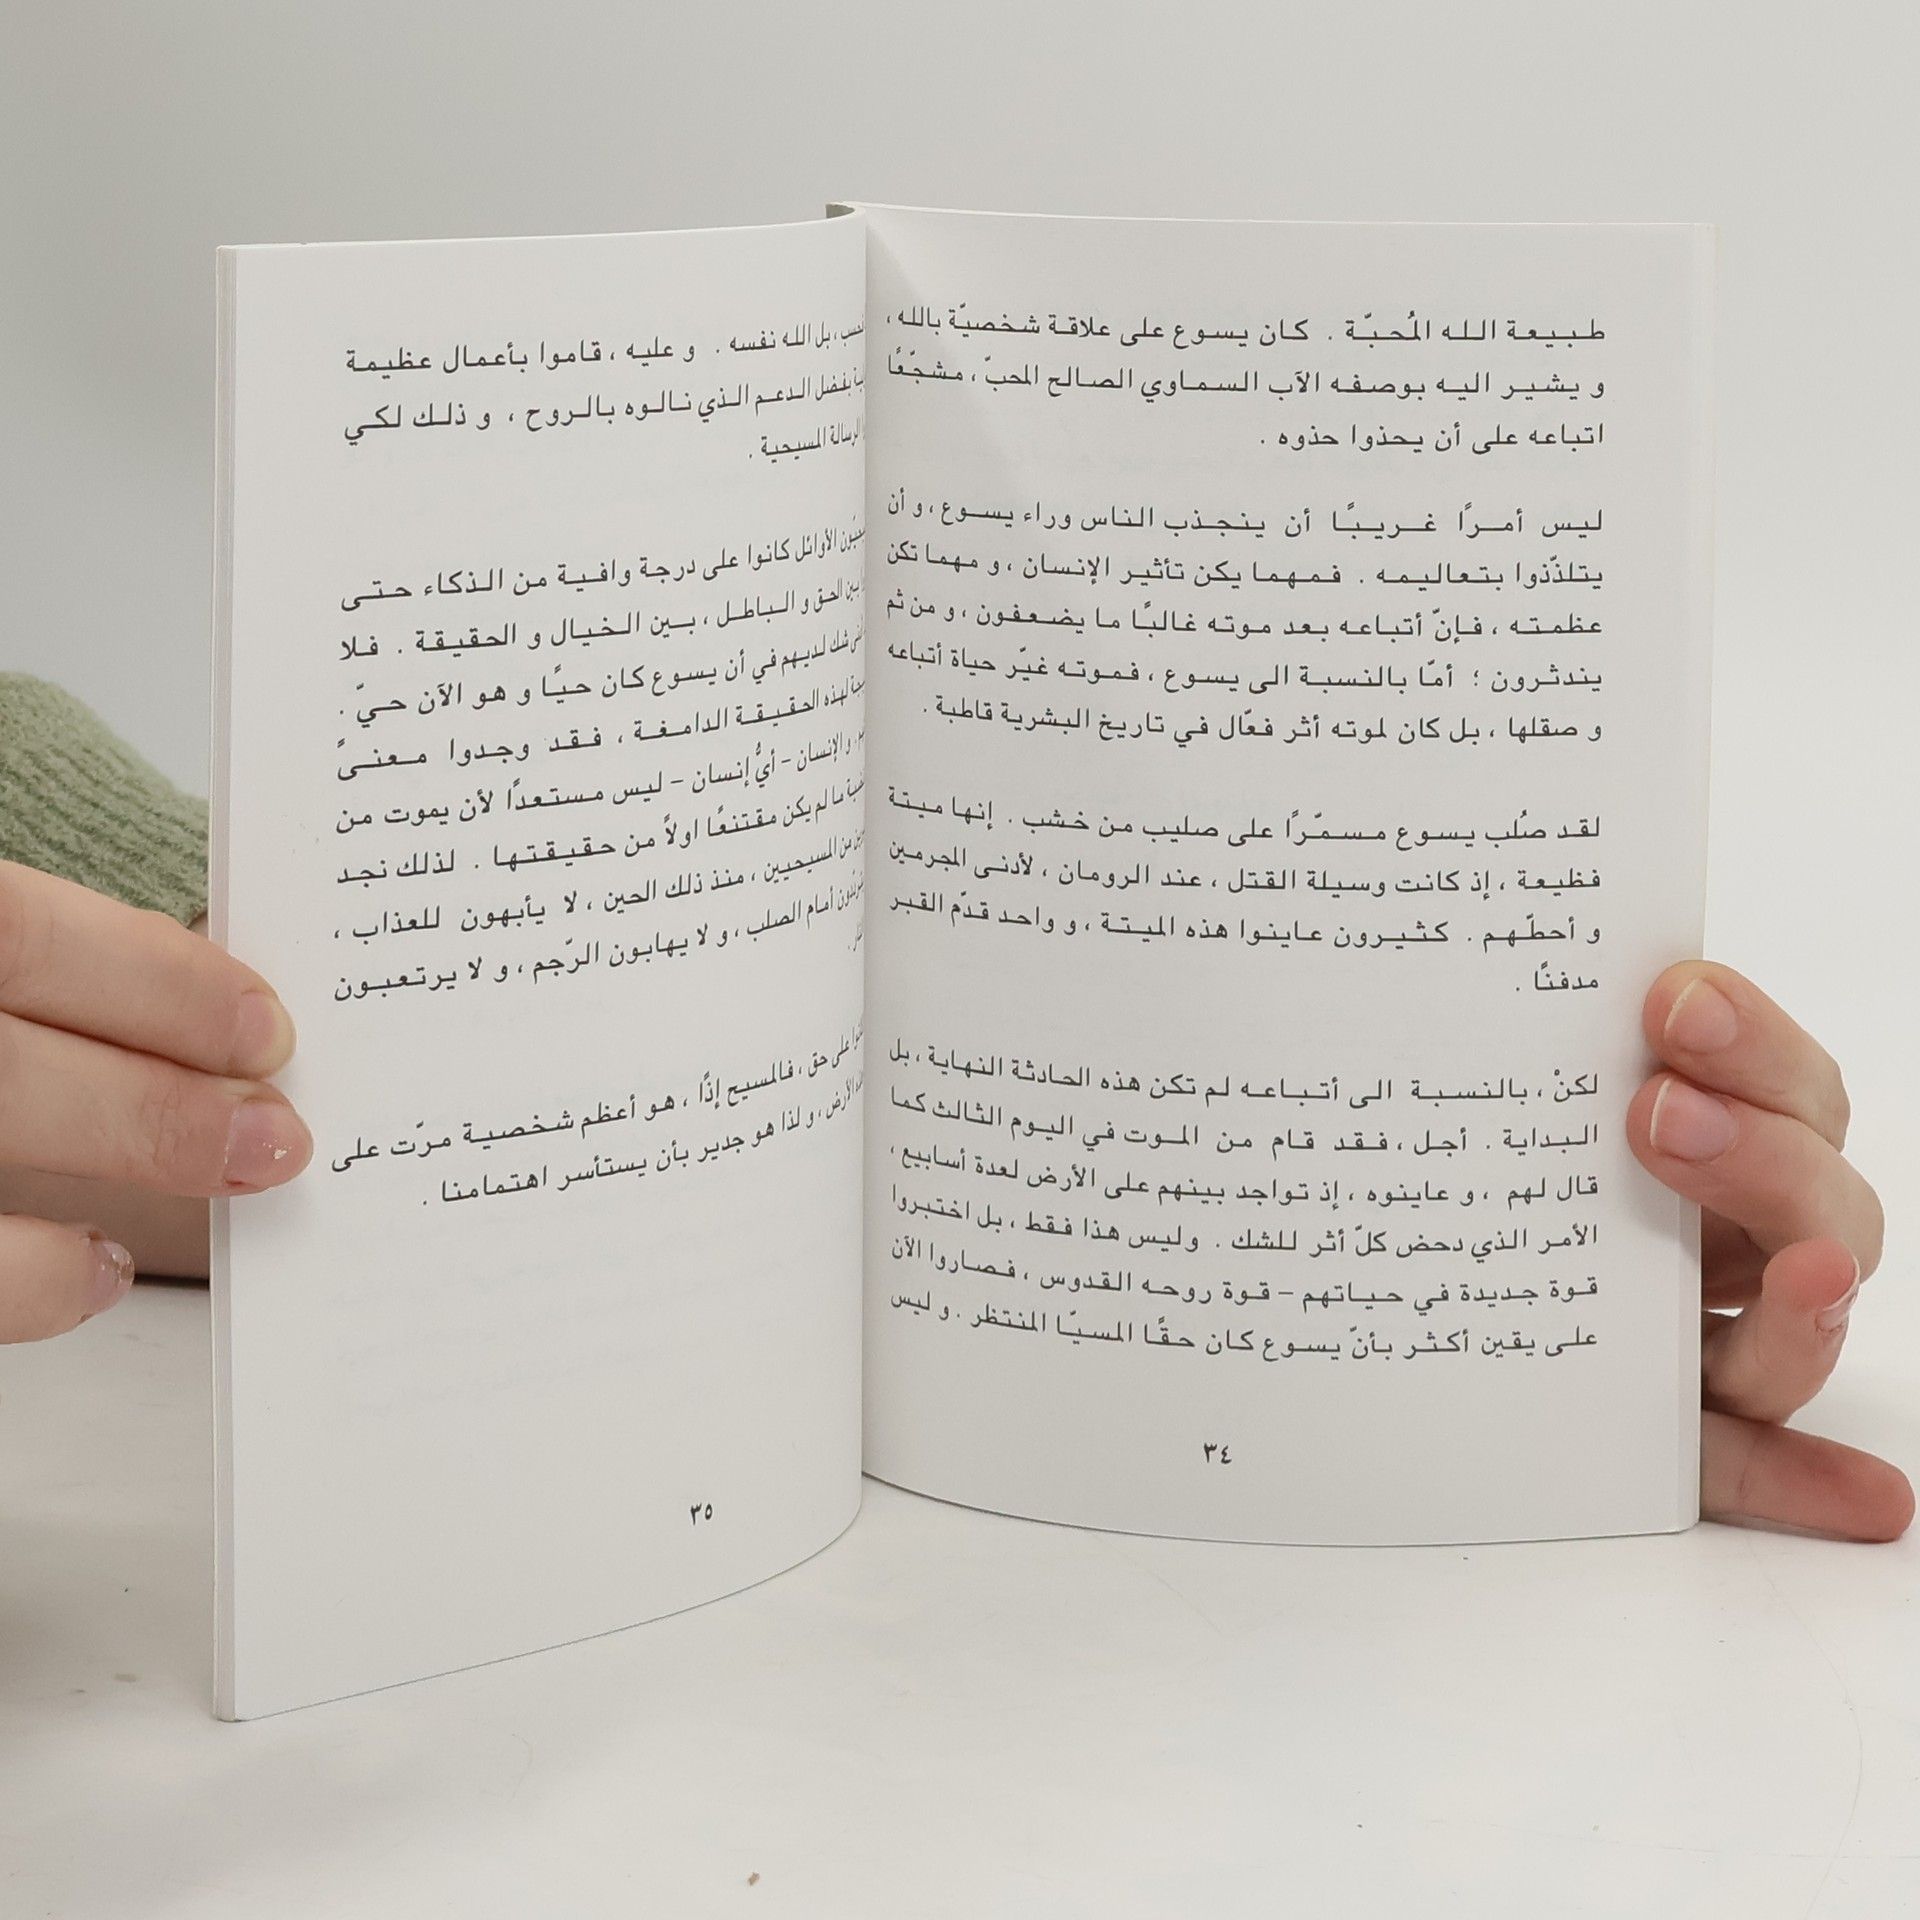 طبيعة الله المُحبّة . كان يسوع على علاقة شخصيّة بالله ،
و يشير اليه بوصفه الآب السماوي الصالح المحبّ ، مشجّعًا
اتباعه على أن يحذوا حذوه .
ليس أمرًا غريبًا أن ينجذب الناس وراء يسوع ، و أن
يتلذّذوا بتعاليمه . فمهما يكن تأثير الإنسان ، و مهما تكن
عظمته ، فإنّ أتباعه بعد موته غالبًا ما يضعفون ، و من ثم
يندثرون ؛ أمّا بالنسبة الى يسوع ، فموته غيّر حياة أتباعه
و صقلها ، بل كان لموته أثر فعّال في تاريخ البشرية قاطبة .
لقد صُلب يسوع مسمّرًا على صليب من خشب . إنها ميتة
فظيعة ، إذ كانت وسيلة القتل ، عند الرومان ، لأدنى المجرمين
و أحطّهم . كثيرون عاينوا هذه الميتة ، و واحد قدّم القبر
مدفنًا .
لكنْ ، بالنسبة الى أتباعه لم تكن هذه الحادثة النهاية ، بل
البداية . أجل ، فقد قام من الموت في اليوم الثالث كما
قال لهم ، و عاينوه ، إذ تواجد بينهم على الأرض لعدة أسابيع ،
الأمر الذي دحض كلّ أثر للشك . وليس هذا فقط ، بل اختبروا
قوة جديدة في حياتهم – قوة روحه القدوس ، فصاروا الآن
على يقين أكثر بأنّ يسوع كان حقًا المسيّا المنتظر . و ليس
٣٤
بل الله نفسه . و عليه ، قاموا بأعمال عظيمة
بفضل الدعم الذي نالوه بالروح ، و ذلك لكي
الرسالة المسيحية .
الأوائل كانوا على درجة وافية من الذكاء حتى
بين الحق و الباطل ، بين الخيال و الحقيقة . فلا
شك لديهم في أن يسوع كان حيًا و هو الآن حيّ .
لهذه الحقيقة الدامغة ، فقد وجدوا معنىً
و الإنسان – أيُّ إنسان – ليس مستعدًا لأن يموت من
ما لم يكن مقتنعًا اولاً من حقيقتها . لذلك نجد
من المسيحيين ، منذ ذلك الحين ، لا يأبهون للعذاب ،
أمام الصلب ، و لا يهابون الرّجم ، و لا يرتعبون
على حق ، فالمسيح إذًا ، هو أعظم شخصية مرّت على
الأرض ، و لذا هو جدير بأن يستأسر اهتمامنا .
٣٥